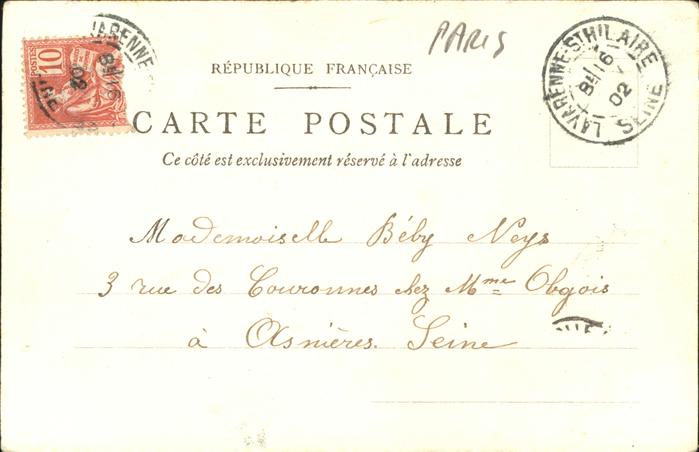 PARIS
10
POSTES
VARENNE-S
8E/16
02
LAVARENNE-ST-HILAIRE
8E/16
02
SEINE
RÉPUBLIQUE FRANÇAISE
CARTE POSTALE
Ce côté est exclusivement réservé à l'adresse
Mademoiselle Béby Neys
3 rue des Couronnes chez Mme Obgois
à Asnières. Seine